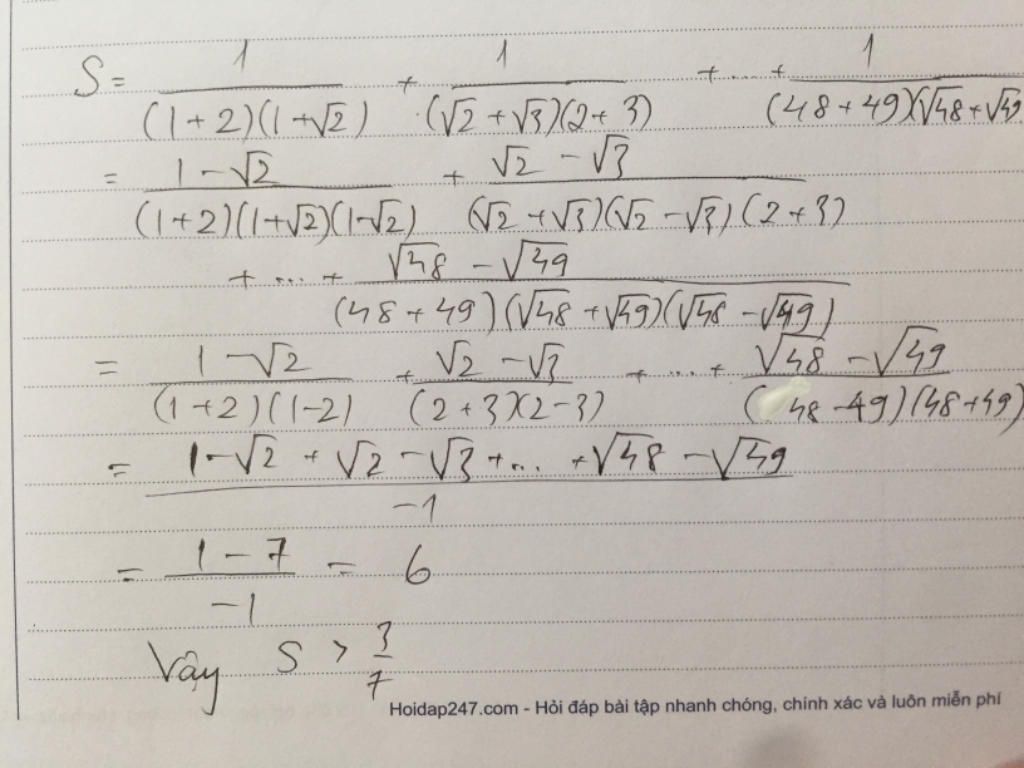 S = 1/((1+2)(1+√2)) + 1/((√2+√3)(2+3)) + ... + 1/((48+49)(√48+√49
= (1-√2)/((1+2)(1+√2)(1-√2)) + (√2-√3)/((√2+√3)(√2-√3)(2+3))
+ ... + (√48-√49)/((48+49)(√48+√49)(√48-√49))
= (1-√2)/((1+2)(1-2)) + (√2-√3)/((2+3)(2-3)) + ... + (√48-√49)/((48-49)(48+49))
= (1-√2+√2-√3+... +√48-√49)/(-1)
= (1-7)/(-1) = 6
Vậy S > 3/7
Hoidap247.com - Hỏi đáp bài tập nhanh chóng, chính xác và luôn miễn phí